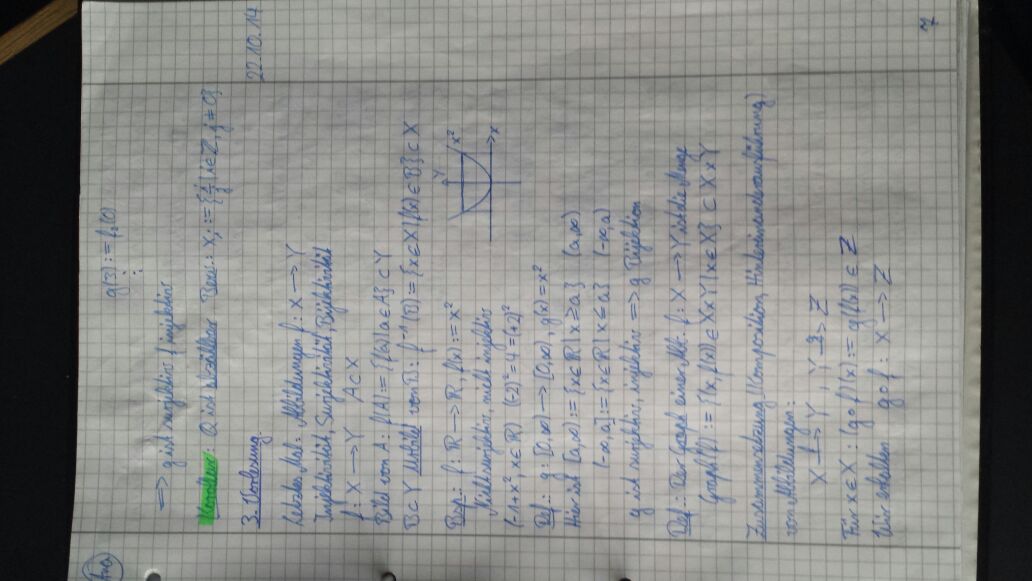 Ana
g(3) := f₂(0)
⋮
=> g ist surjektiv, injektiv
Korollar: Q ist abzählbar Bew.: X_j := {i/j | i ∈ Z, j ≠ 0}
3. Vorlesung. 22.10.14
Letztes Mal: Abbildungen f: X → Y
Injektivität, Surjektivität, Bijektivität
f: X → Y A ⊂ X
Bild von A: f(A) := {f(a) | a ∈ A} ⊂ Y
B ⊂ Y Urbild von B: f⁻¹(B) = {x ∈ X | f(x) ∈ B} ⊂ X
Bsp.: f: R → R, f(x) := x²
Nicht surjektiv, nicht injektiv
(-1 ≠ x², x ∈ R) (-2)² = 4 = (+2)²
Y x² x
Def.: g: [0,∞) → [0,∞), g(x) = x²
Hier ist [a,∞) := {x ∈ R | x ≥ a} (a,∞)
(-∞,a] := {x ∈ R | x ≤ a} (-∞,a)
g ist surjektiv, injektiv => g Bijektion
Def.: Der Graph einer Abb. f: X → Y ist die Menge
Graph(f) := {(x, f(x)) ∈ X×Y | x ∈ X} ⊂ X×Y
Zusammensetzung (Komposition, Hintereinanderausführung)
von Abbildungen:
X →f Y, Y →g Z
Für x ∈ X: (g∘f)(x) := g(f(x)) ∈ Z
Wir erhalten g∘f: X → Z
7